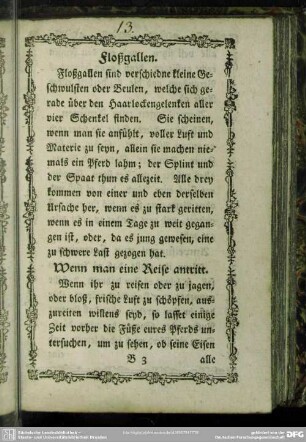 13.
Floßgallen.
Floßgallen sind verschiedne kleine Ge-
schwulsten oder Beulen, welche sich ge-
rade über den Haarlockengelenken aller
vier Schenkel finden. Sie scheinen,
wenn man sie anfühlt, voller Luft und
Materie zu seyn, allein sie machen nie-
mals ein Pferd lahm; der Splint und
der Spaat thun es allezeit. Alle drey
kommen von einer und eben derselben
Ursache her, wenn es zu stark geritten,
wenn es in einem Tage zu weit gegan-
gen ist, oder, da es jung gewesen, eine
zu schwere Last gezogen hat.
Wenn man eine Reise antritt.
Wenn ihr zu reisen oder zu jagen,
oder bloß, frische Luft zu schöpfen, aus-
zureiten willens seyd, so lasset einige
Zeit vorher die Füße eures Pferds un-
tersuchen, um zu sehen, ob seine Eisen
B 3 alle
DFG